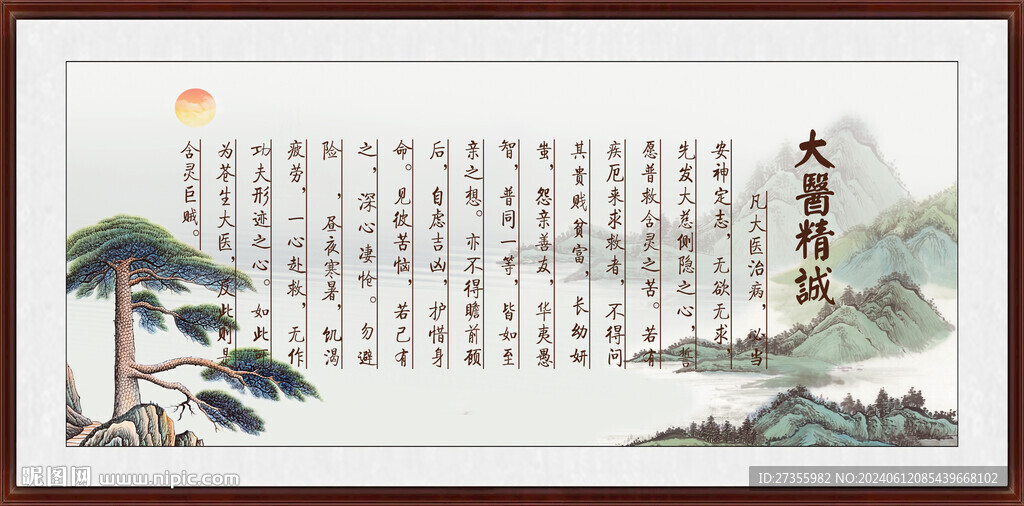 大醫精誠
凡大医治病，必当
安神定志，无欲无求，
先发大慈侧隐之心，誓
愿普救含灵之苦。若有
疾厄来求救者，不得问
其贵贱贫富，长幼妍
蚩，怨亲善友，华夷愚
智，普同一等，皆如至
亲之想。亦不得瞻前顾
后，自虑吉凶，护惜身
命。见彼苦恼，若己有
之，深心凄怆。勿避
险，昼夜寒暑，饥渴
疲劳，一心赴救，无作
功夫形迹之心。如此可
为苍生大医，反此则是
含灵巨贼。
昵图网 www.nipic.com
ID:27355982 NO:20240612085439668102